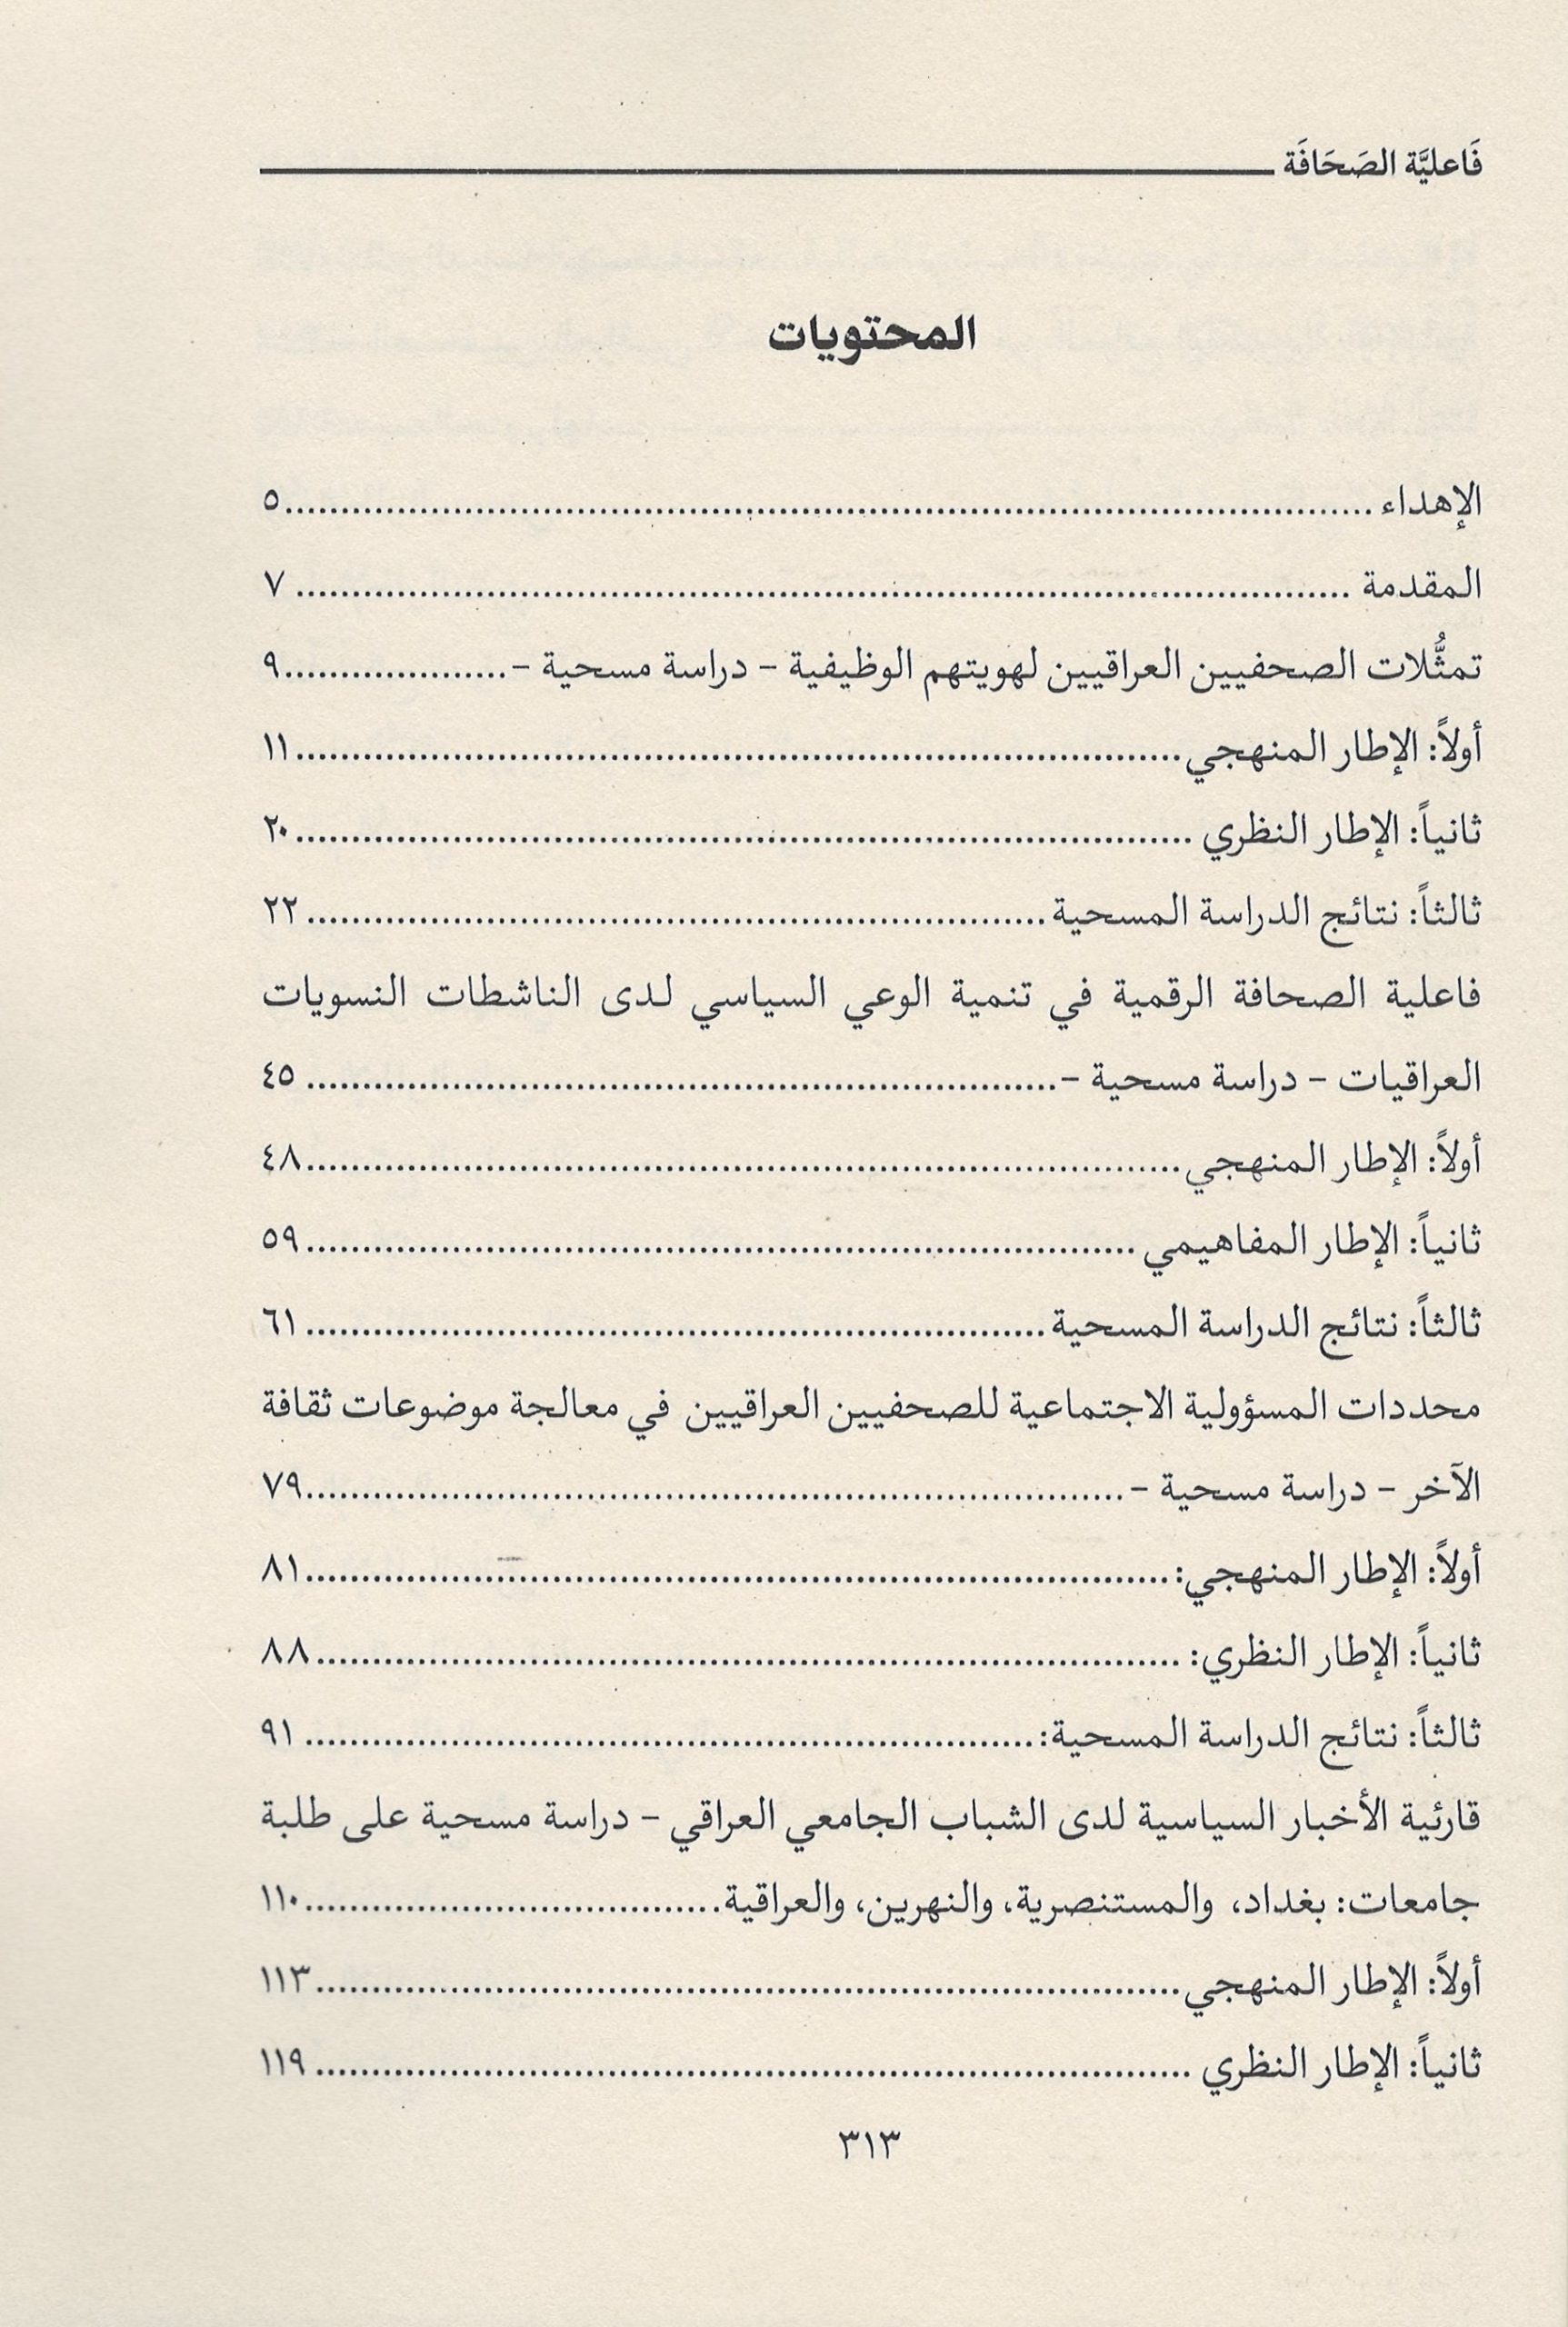 فَاعليَّة الصَحَافَة
المحتويات
الإهداء ........................................ ٥
المقدمة ........................................ ٧
تمثُّلات الصحفيين العراقيين لهويتهم الوظيفية – دراسة مسحية – .................... ٩
أولاً: الإطار المنهجي ........................................ ١١
ثانياً: الإطار النظري ........................................ ٢٠
ثالثاً: نتائج الدراسة المسحية ........................................ ٢٢
فاعلية الصحافة الرقمية في تنمية الوعي السياسي لدى الناشطات النسويات
العراقيات – دراسة مسحية – ........................................ ٤٥
أولاً: الإطار المنهجي ........................................ ٤٨
ثانياً: الإطار المفاهيمي ........................................ ٥٩
ثالثاً: نتائج الدراسة المسحية ........................................ ٦١
محددات المسؤولية الاجتماعية للصحفيين العراقيين في معالجة موضوعات ثقافة
الآخر – دراسة مسحية – ........................................ ٧٩
أولاً: الإطار المنهجي: ........................................ ٨١
ثانياً: الإطار النظري: ........................................ ٨٨
ثالثاً: نتائج الدراسة المسحية: ........................................ ٩١
قارئية الأخبار السياسية لدى الشباب الجامعي العراقي – دراسة مسحية على طلبة
جامعات: بغداد، والمستنصرية، والنهرين، والعراقية ........................................ ١١٠
أولاً: الإطار المنهجي ........................................ ١١٣
ثانياً: الإطار النظري ........................................ ١١٩
٣١٣